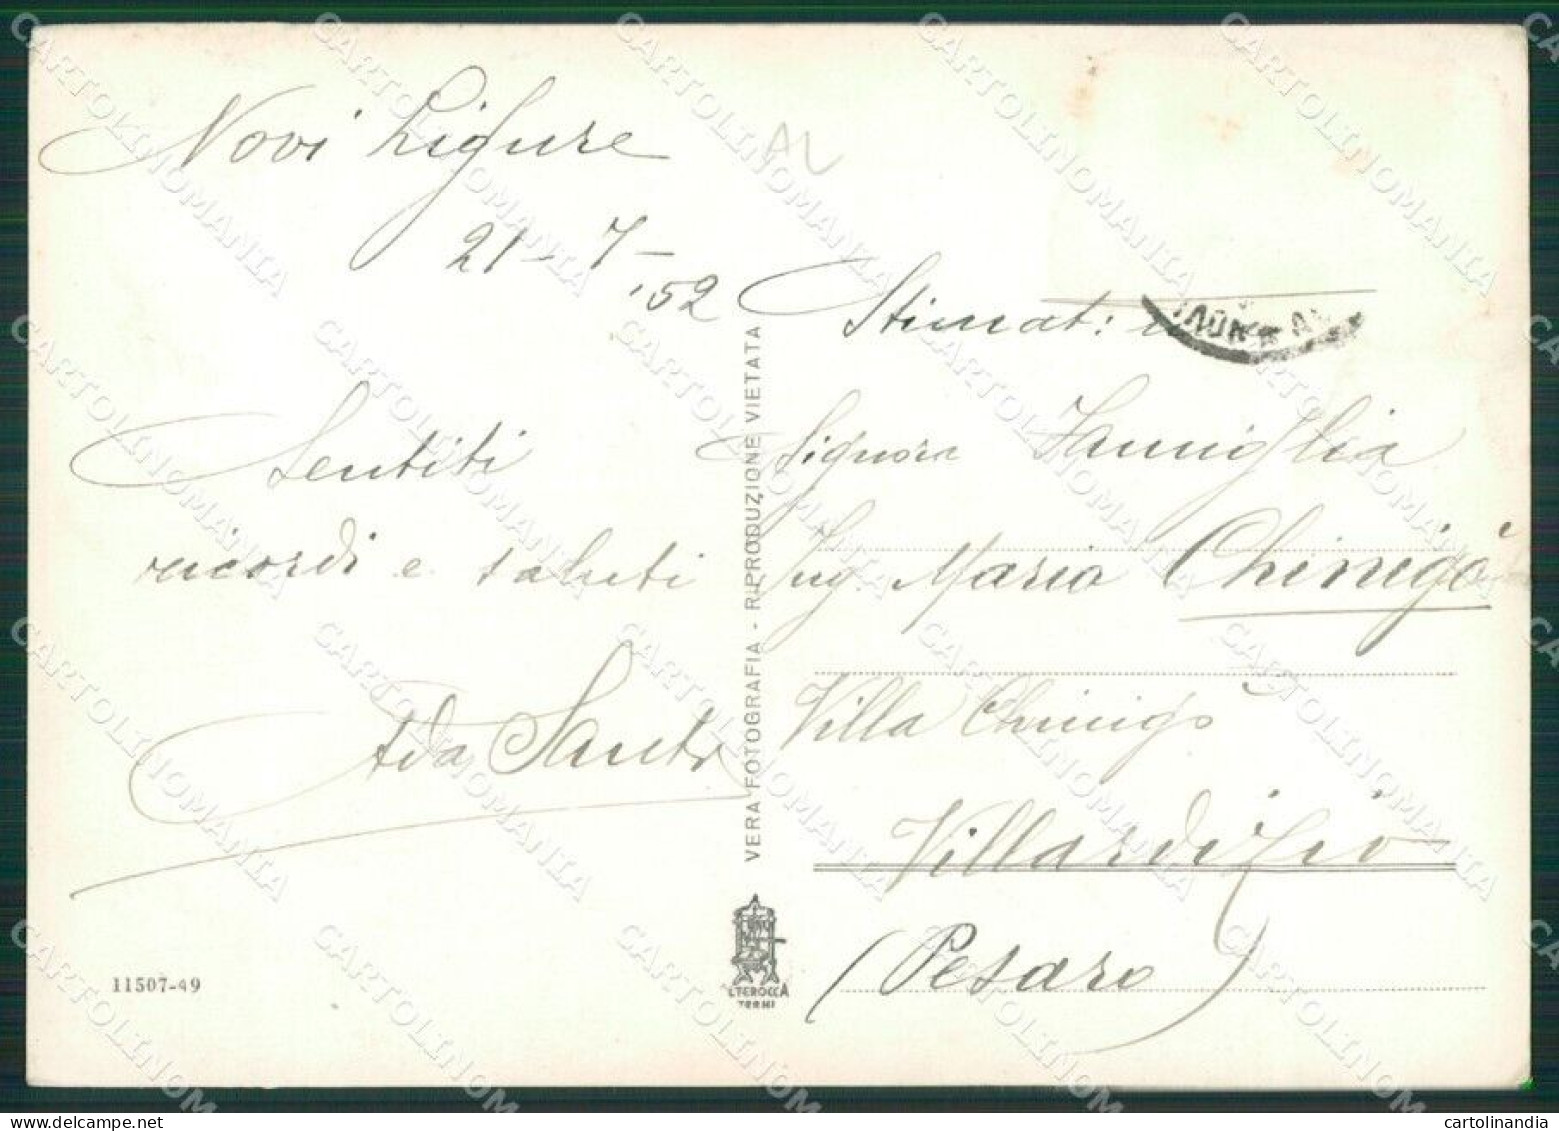 Novi Ligure
AL
21-7-
'52
Stimat:
Sentiti
ricordi e saluti
Ada
Signora Famiglia
Ing. Maria Chinigò
Villa Chinigò
Villardizio
(Pesaro)
VERA FOTOGRAFIA - RIPRODUZIONE VIETATA
11507-49
TERNI
CARTOLINOMANIA
cartolinandia